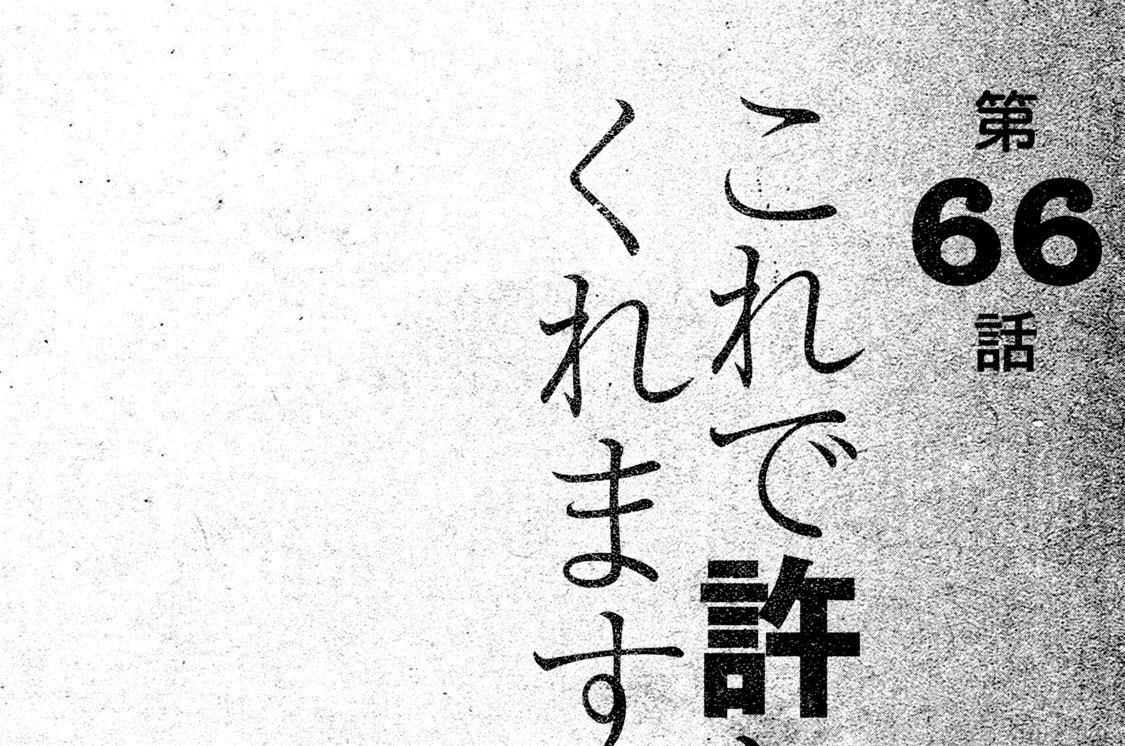 第66話
これで許
くれます